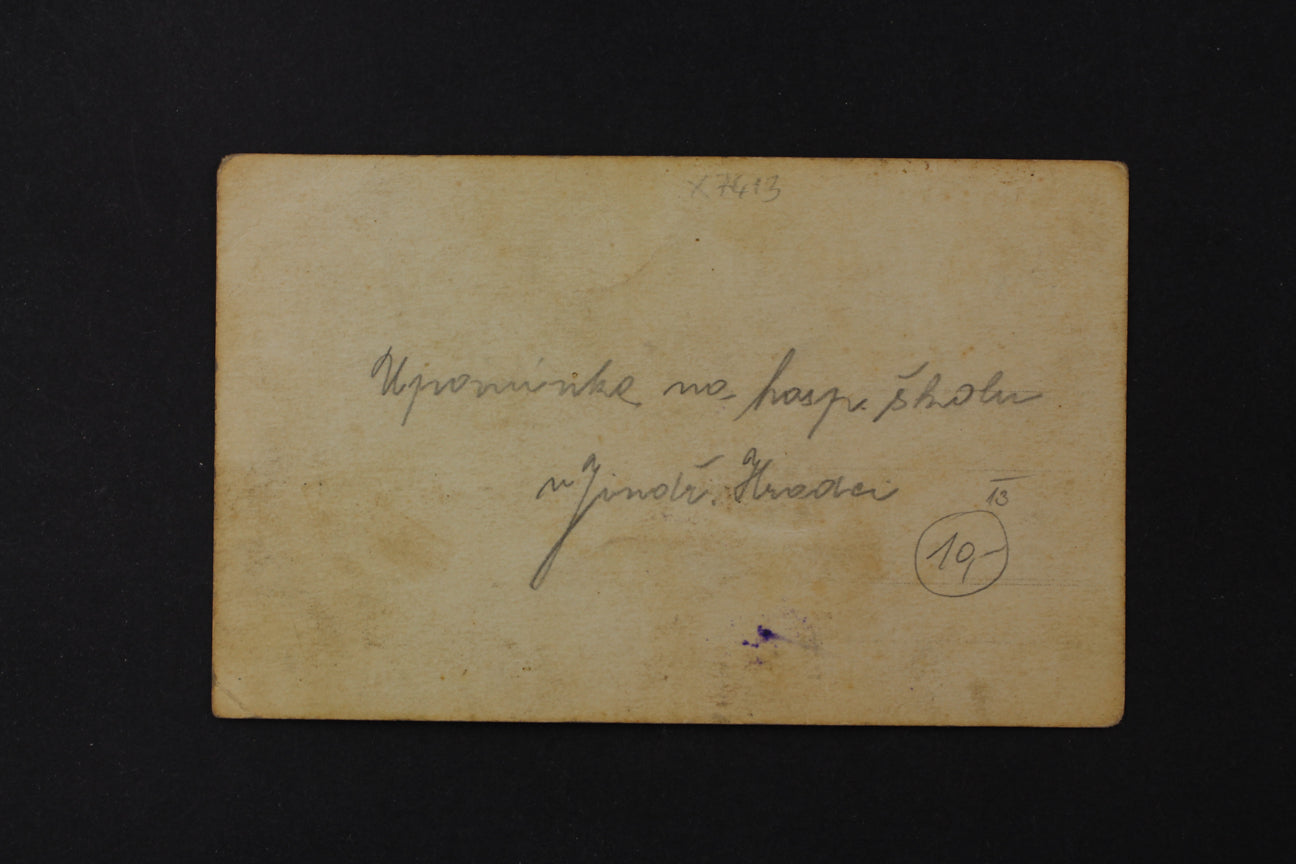 X 7413
Upomínka na hosp. školu
v Jindř. Hradci
13
10,-